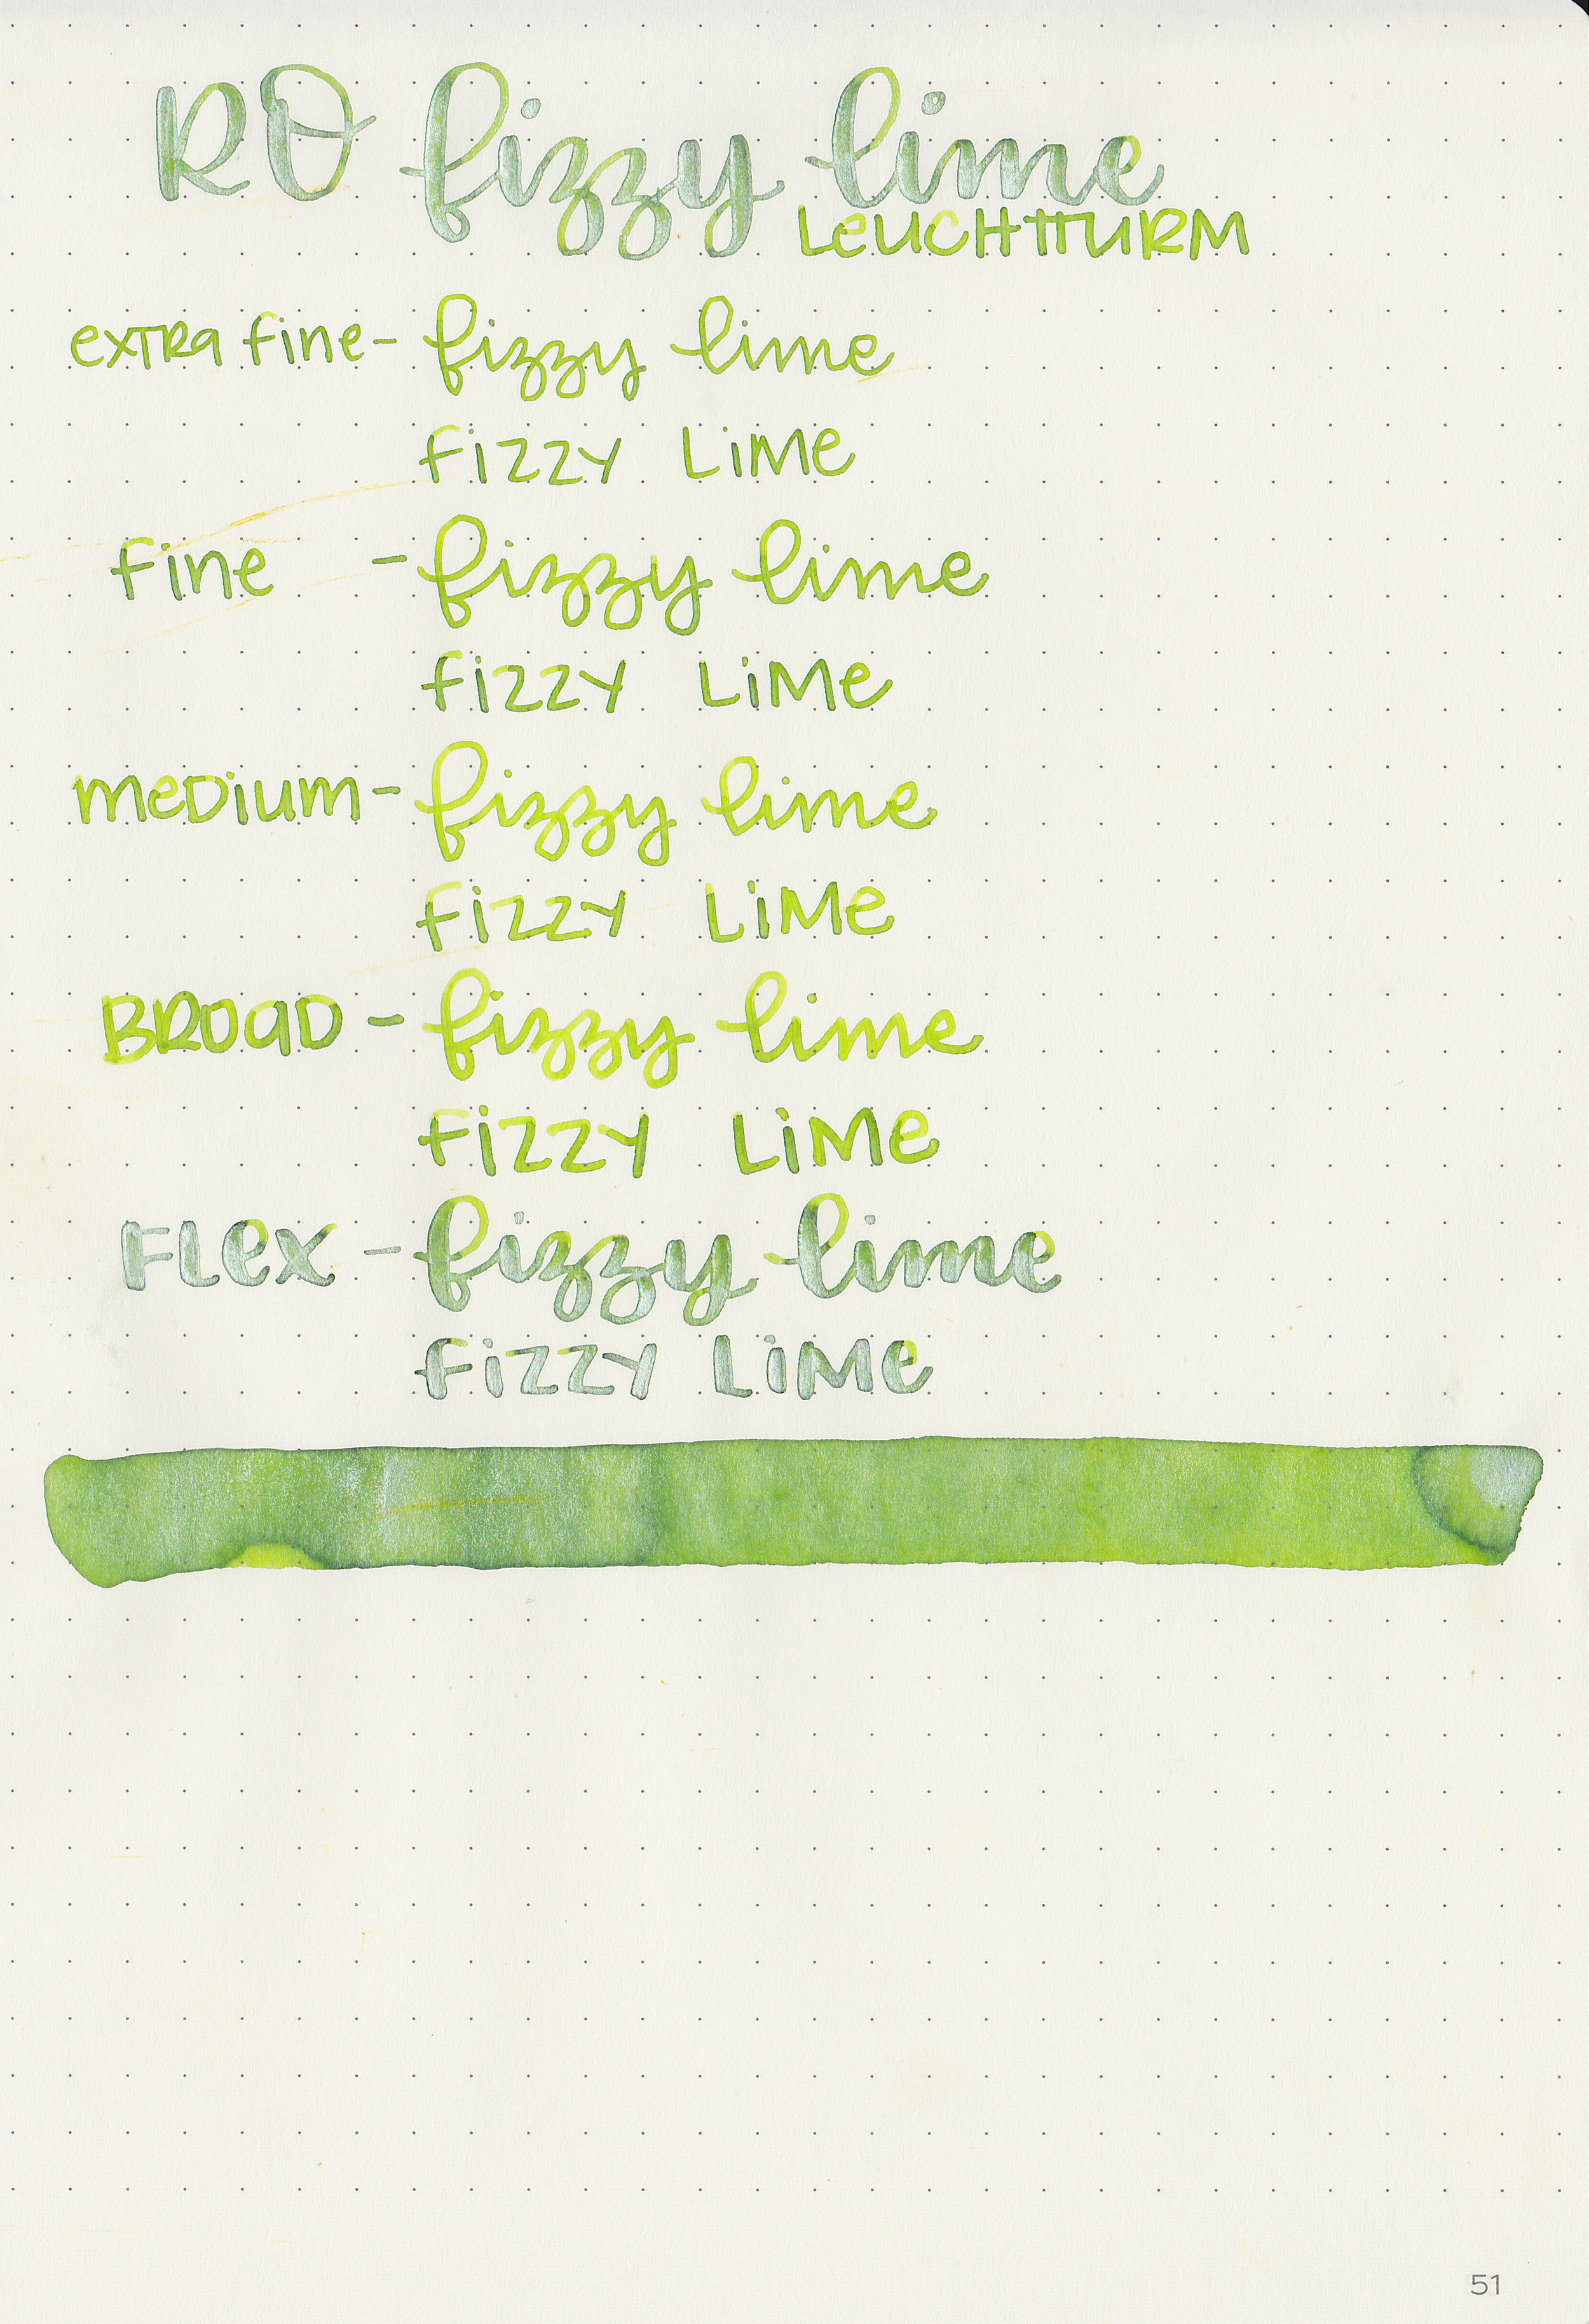 RO fizzy lime
LEUCHTTURM
EXTRA fine- fizzy lime
FIZZY LIME
FINE - fizzy lime
FIZZY LIME
MEDIUM- fizzy lime
FIZZY LIME
BROAD - fizzy lime
FIZZY LIME
FLEX - fizzy lime
FIZZY LIME
51